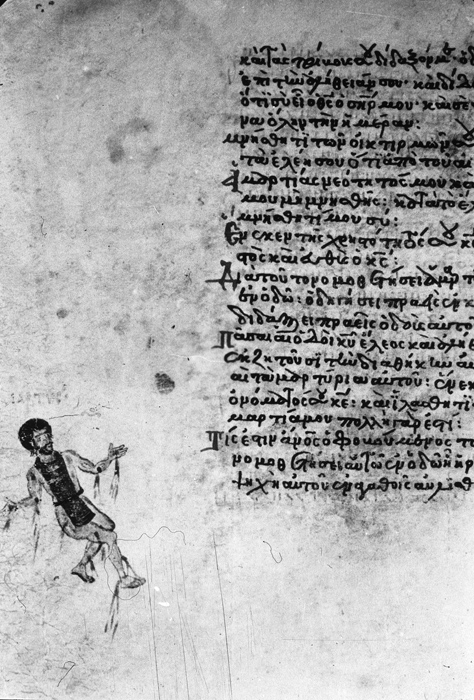 καὶ τὰς τρίβους σου δίδαξόν με· ὁδ
ἐπὶ τὴν ἀλήθειάν σου· καὶ δίδα
ὅτι σὺ εἶ ὁ θεὸς ὁ σηρ μου· καὶ σὲ
να ὅλην τὴν ἡμέραν:
μνήσθητι τῶν οἰκτιρμῶν σ
τὰ ἐλέη σου ὅτι ἀπὸ τοῦ αἰ
Ἁμαρτίας νεότητός μου κα
μου μὴ μνησθῆς: κατὰ τὸ ἔλ
μνήσθητί μου σύ:
Ἕνεκεν τῆς χρηστότητός σου κε
στὸς καὶ εὐθὴς ὁ κς:
Διὰ τοῦτο νομοθετήσει ἁμαρτ
ἐν ὁδῶ: ὁδηγήσει πραεῖς ἐν κ
διδάξει πραεῖς ὁδοὺς αὐτο
Πᾶσαι αἱ ὁδοὶ κυ ἔλεος καὶ ἀλήθ
ἐκζητοῦσι τὴν διαθήκην αὐ
αὶ τὰ μαρτύρια αὐτοῦ: ἕνεκ
ὀνόματός σου κε: καὶ ἱλάσθητι
μαρτία μου πολλὴ γάρ ἐστι:
Τίς ἐστιν ἄνος ὁ φοβούμενος το
νομοθετήσει αὐτῶ ἐν ὁδῶ ἧ ἡρ
ψυχὴ αὐτοῦ ἐν ἀγαθοῖς αὐλισθ